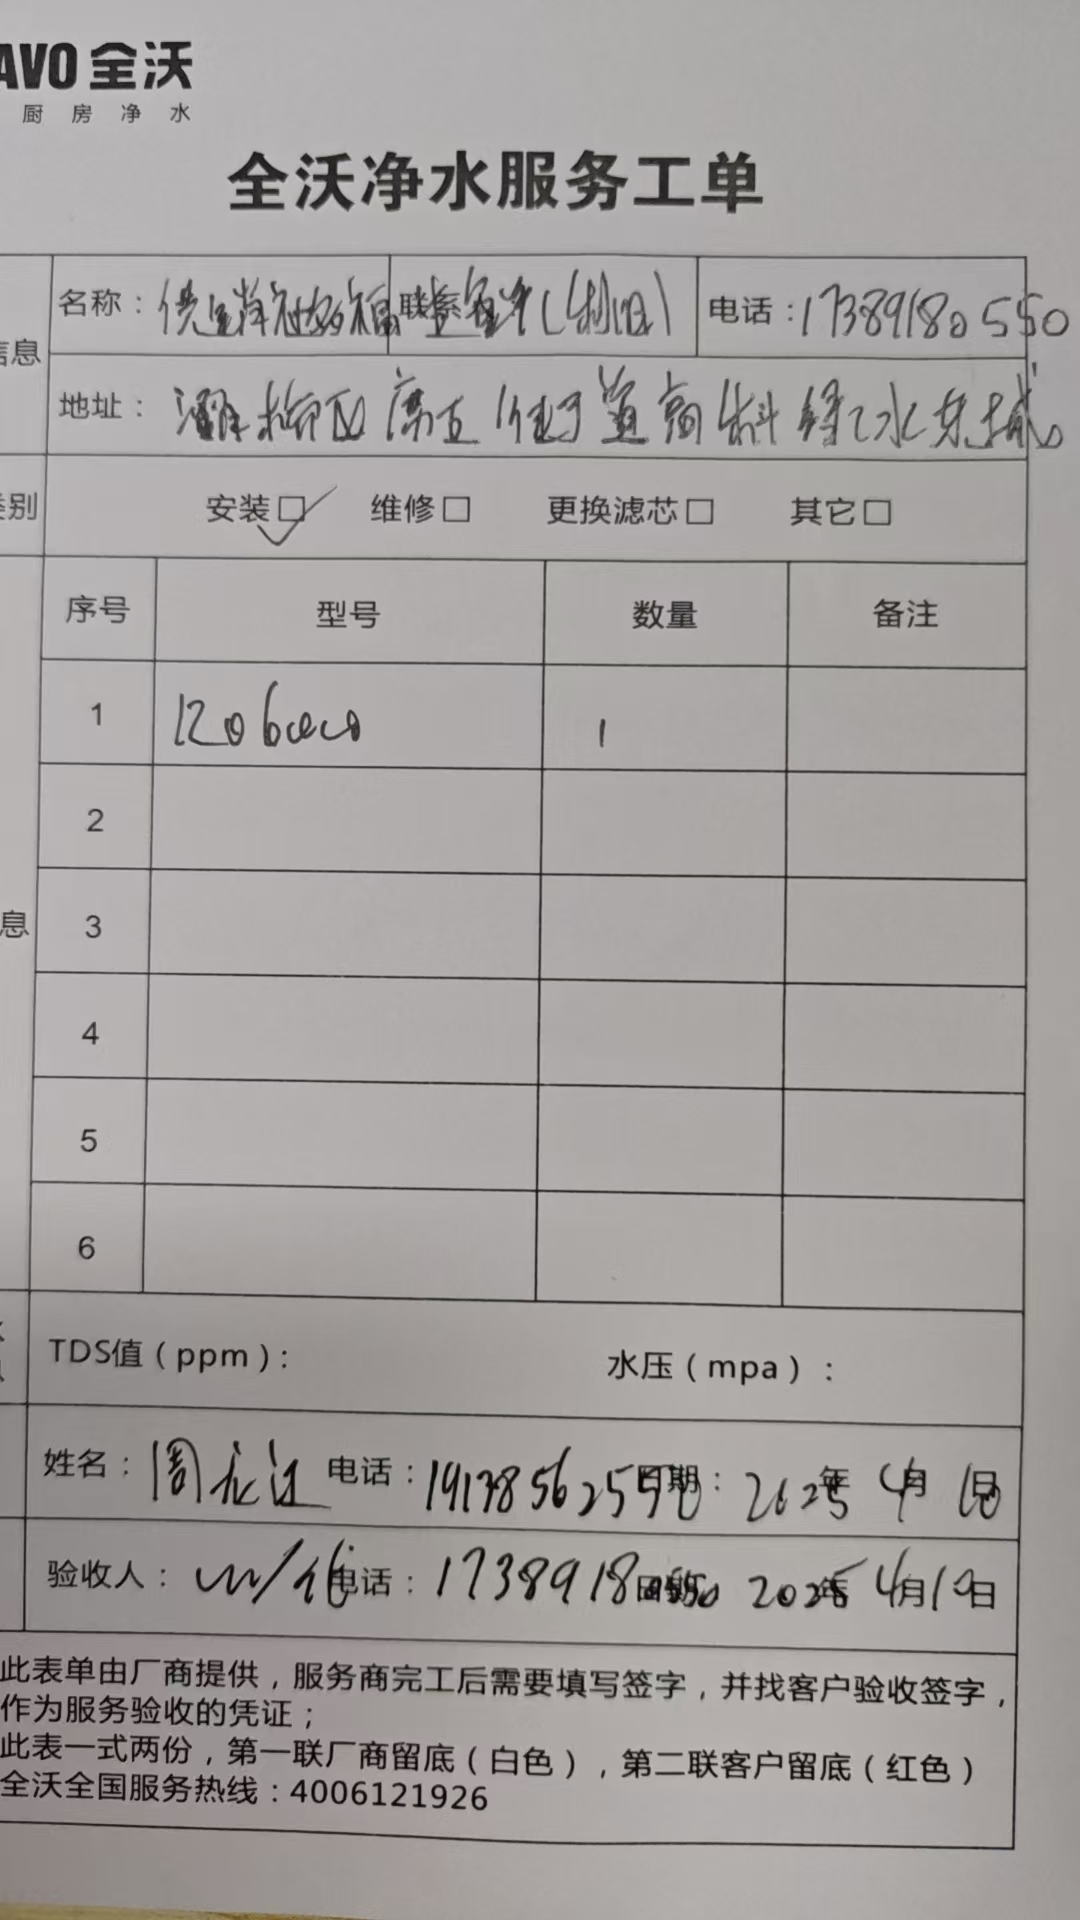 AVO 全沃
厨房净水
全沃净水服务工单
信息
名称：
联系
电话：17389180550
地址： 灞桥区席王街道
类别
安装☑ 维修□ 更换滤芯□ 其它□
序号 型号 数量 备注
1 RO6000 1
2
3
息
4
5
6
TDS值（ppm）： 水压（mpa）：
姓名：周永江 电话： 日期：2025年4月10日
验收人： 电话：17389180550 日期 2025年4月10日
此表单由厂商提供，服务商完工后需要填写签字，并找客户验收签字，
作为服务验收的凭证；
此表一式两份，第一联厂商留底（白色），第二联客户留底（红色）
全沃全国服务热线：4006121926